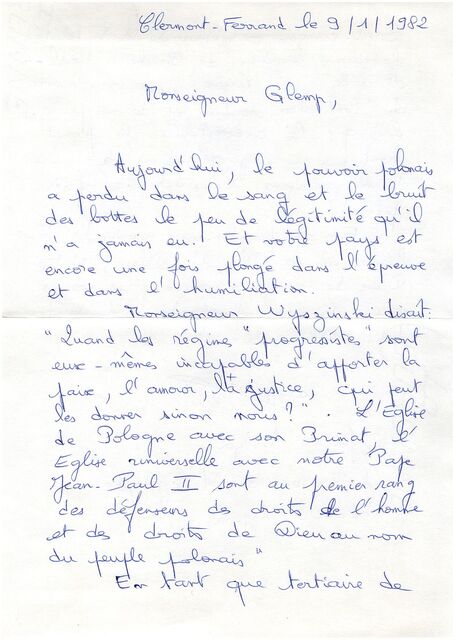 Clermont-Ferrand le 9/1/1982
Monseigneur Glemp,
Aujourd'hui, le pouvoir polonais
a perdu dans le sang et le bruit
des bottes le peu de légitimité qu'il
n'a jamais eu. Et votre pays est
encore une fois plongé dans l'épreuve
et dans l'humiliation.
Monseigneur Wyszinski disait:
"Quand les régime "progressistes" sont
eux-mêmes incapables d'apporter la
paix, l'amour, la justice, qui peut
les donner sinon nous?". L'Eglise
de Pologne avec son Primat, l'
Eglise universelle avec notre Pape
Jean-Paul II sont au premier rang
des défenseurs des droits de l'homme
et des droits de Dieu au nom
du peuple polonais"
En tant que tertiaire de